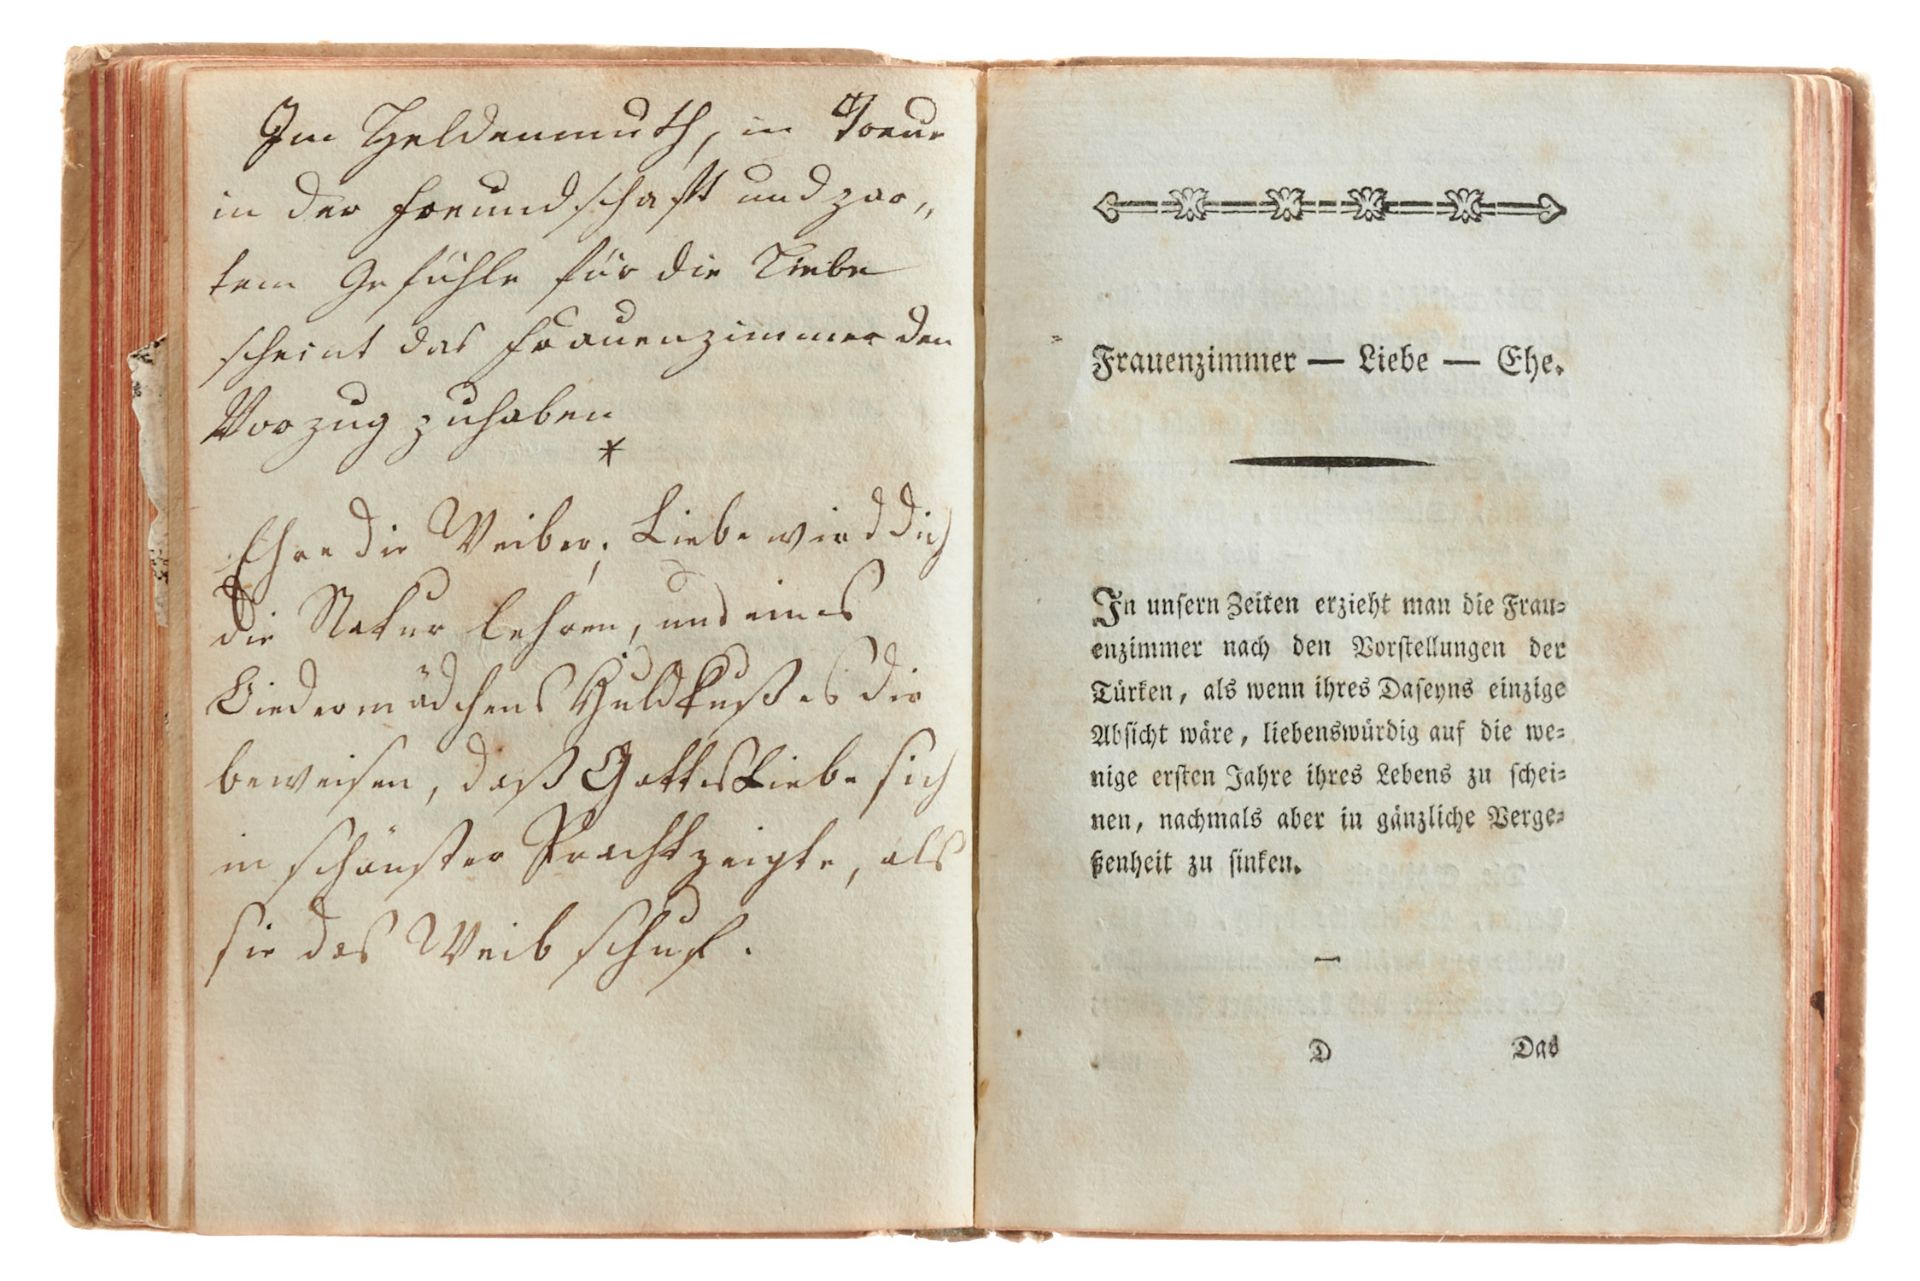 Im Heldenmuth, in Treue
in der Freundschaft und zar„
tem Gefühle für die Liebe
scheint das Frauenzimmer den
Vorzug zuhaben
*
Ehre die Weiber; Liebe wird dich
die Natur lehren, und eines
Biedermädchens Huldkuß es dir
beweisen, daß Gottes Liebe sich
in schönster Pracht zeigte, als
sie das Weib schuf.
Frauenzimmer — Liebe — Ehe.
In unsern Zeiten erzieht man die Frau-
enzimmer nach den Vorstellungen der
Türken, als wenn ihres Daseyns einzige
Absicht wäre, liebenswürdig auf die we-
nige ersten Jahre ihres Lebens zu schei-
nen, nachmals aber in gänzliche Verge-
ßenheit zu sinken.
—
D Das